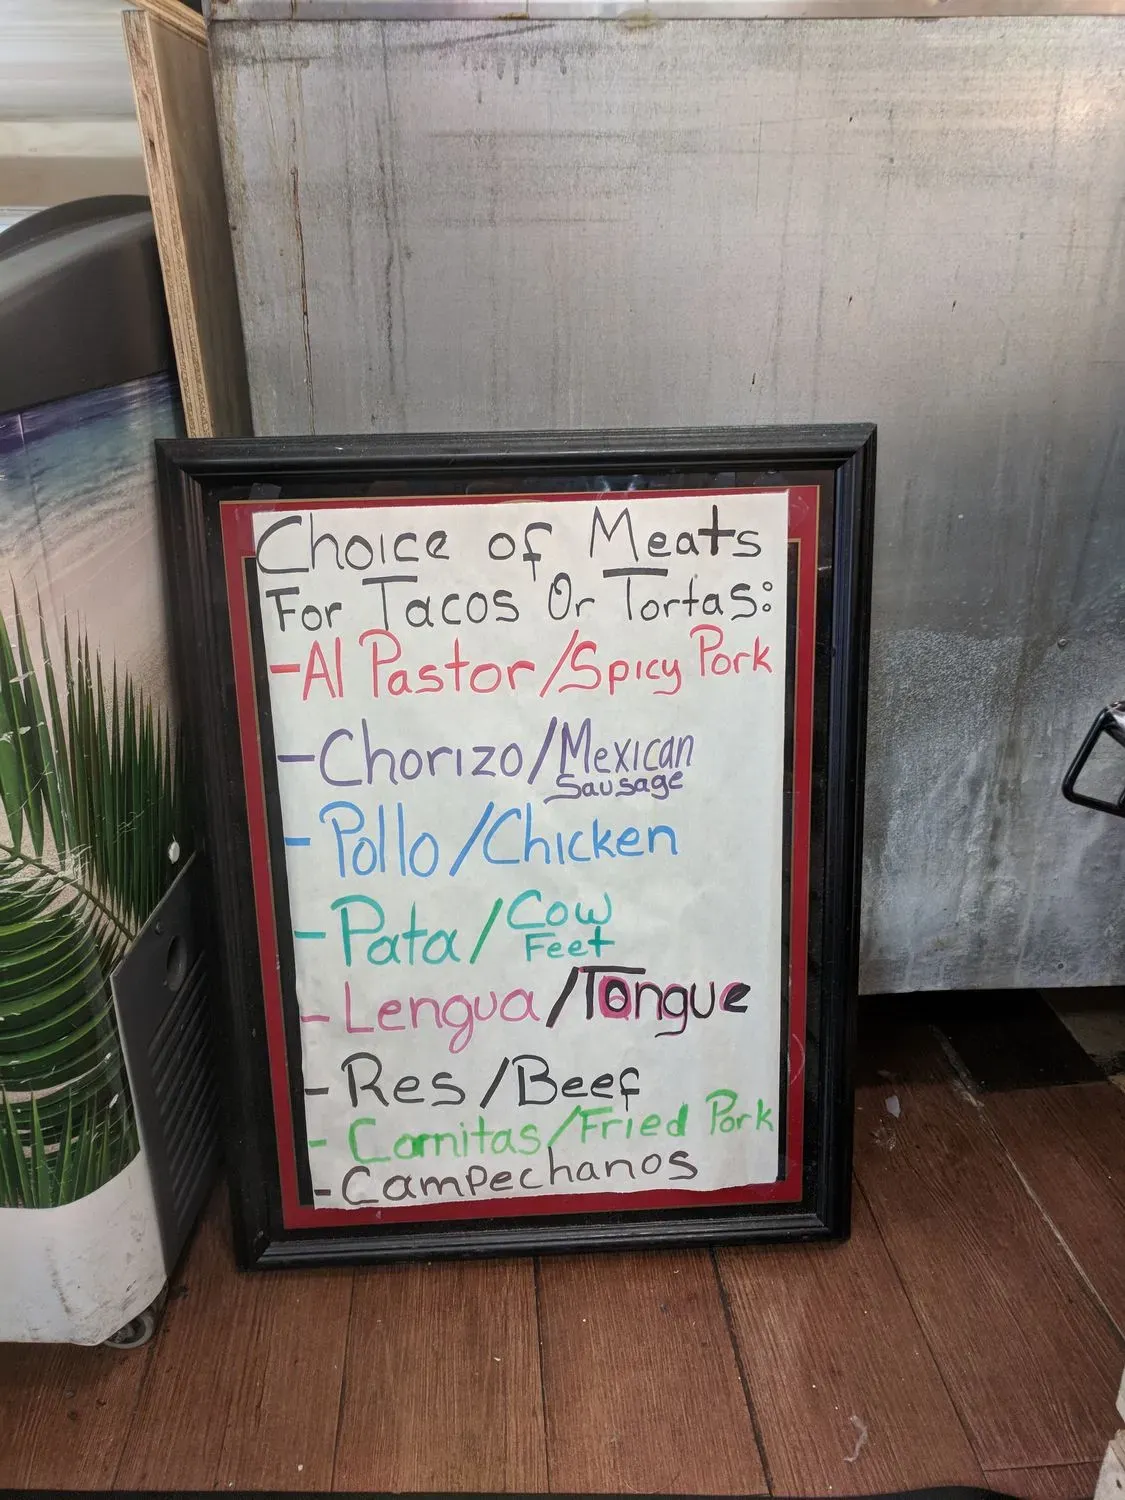 Choice of Meats
For Tacos Or Tortas:
-Al Pastor/Spicy Pork
-Chorizo/Mexican
Sausage
-Pollo/Chicken
-Pata/Cow
Feet
-Lengua/Tongue
-Res/Beef
-Carnitas/Fried Pork
-Campechanos